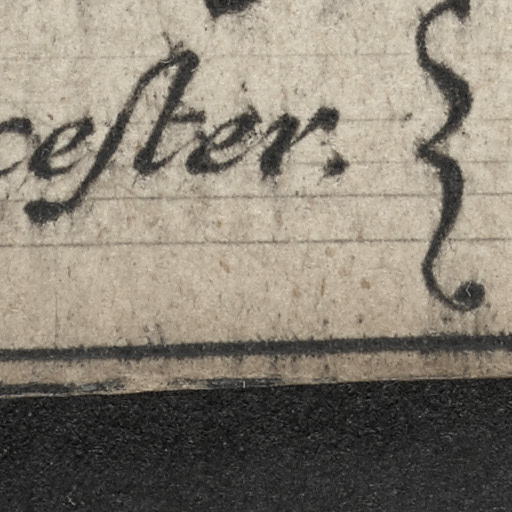 ceſter.